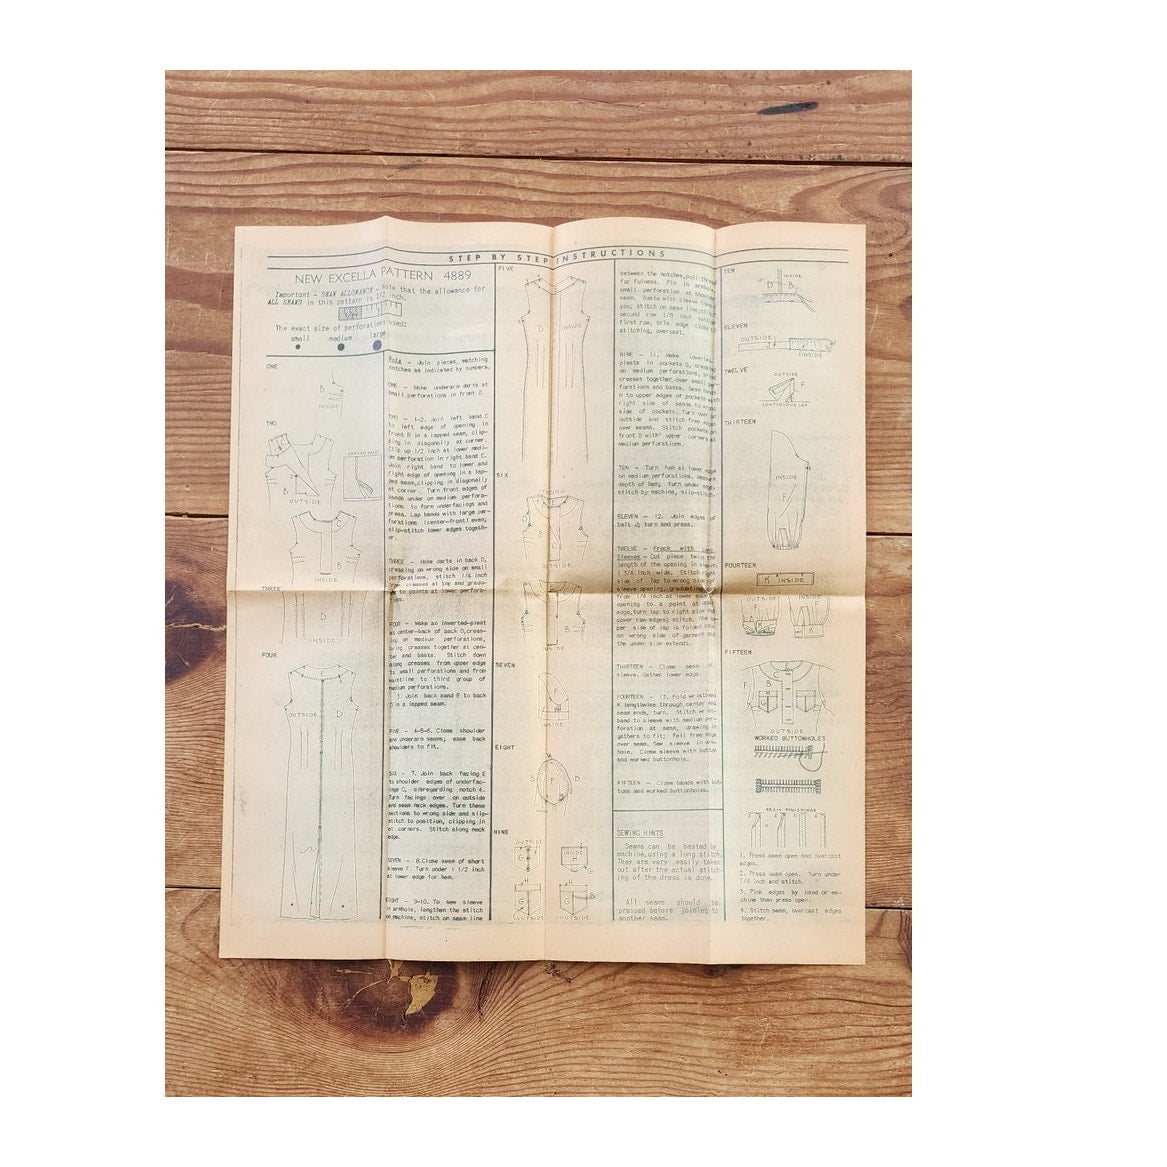 STEP BY STEP INSTRUCTIONS
NEW EXCELLA PATTERN 4889
Important - SEAM ALLOWANCE - Note that the allowance for
ALL SEAMS in this pattern is 1/2 inch.
The exact size of perforations used:
small medium large
ONE
B
INSIDE
TWO
C
B
OUTSIDE
LAPPED SEAM
C
B
INSIDE
THREE
D
INSIDE
FOUR
OUTSIDE
D
Note - Join pieces, matching
notches as indicated by numbers.
ONE - Make underarm darts at
small perforations in front B.
TWO - 1-2. Join left band C
to left edge of opening in
front B in a lapped seam, clip-
ping in diagonally at corner.
Clip up 1/2 inch at lower medi-
um perforation in right band C.
Join right band to lower and
right edge of opening in a lap-
ped seam, clipping in diagonally
at corner. Turn front edges of
bands under on medium perfora-
tions to form underfacings and
press. Lap bands with large per-
forations (center-front) even;
slip-stitch lower edges togeth-
er.
THREE - Make darts in back D,
creasing on wrong side on small
perforations, stitch 1/4 inch
from creases at top and gradu-
ate to points at lower perfora-
tions.
FOUR - Make an inverted-pleat
at center-back of back D, creas-
ing on medium perforations,
bring creases together at cen-
ter and baste. Stitch down
along creases from upper edge
to small perforations and from
waistline to third group of
medium perforations.
Join back band E to back
D in a lapped seam.
FIVE - 4-5-6. Close shoulder
and underarm seams; ease back
shoulders to fit.
SIX - 7. Join back facing E
to shoulder edges of underfac-
ings C, disregarding notch 4.
Turn facings over on outside
and seam neck edges. Turn these
sections to wrong side and slip-
stitch to position, clipping in
at corners. Stitch along neck
edge.
SEVEN - 8. Close seam of short
sleeve F. Turn under 1 1/2 inch
at lower edge for hem.
EIGHT - 9-10. To sew sleeve
in armhole, lengthen the stitch
on machine, stitch on seam line
FIVE
D
INSIDE
SIX
FACING
B
C
OUTSIDE
B
INSIDE
SEVEN
F
INSIDE
EIGHT
B
D
F
NINE
OUTSIDE
G
INSIDE
H
G
H
G
OUTSIDE
H
G
OUTSIDE
between the notches, pull thread
for fulness. Pin in armhole
small perforation at shoulder
seam. Baste with sleeve toward
you; stitch on seam line, stitch
second row 1/8 inch outside
first row, trim edge close to
stitching, overcast.
NINE - 11. Make inverted-
pleats in pockets G, creasing
on medium perforations, bring
creases together over small per-
forations and baste. Seam bands
H to upper edges of pockets with
right side of bands to wrong
side of pockets. Turn over on
outside and stitch free edges
over seams. Stitch pockets to
front B with upper corners at
medium perforations.
TEN - Turn hem at lower edge
on medium perforations, measure
depth of hem; turn under edge,
stitch by machine, slip-stitch.
ELEVEN - 12. Join edges of
belt J; turn and press.
TWELVE - Frock with Long
Sleeves - Cut piece twice the
length of the opening in sleeve,
1 3/4 inch wide. Stitch right
side of lap to wrong side of
sleeve opening, graduating
from 1/4 inch at lower edge of
opening to a point at upper
edge, turn lap to right side and
cover raw edges; stitch. The up-
per side of lap is folded back
on wrong side of garment and
the under side extends.
THIRTEEN - Close seam of
sleeve. Gather lower edge.
FOURTEEN - 13. Fold wristband
K lengthwise through center and
seam ends, turn. Stitch wrist-
band to sleeve with medium per-
foration at seam, drawing in
gathers to fit; fell free edge
over seam. Sew sleeve in arm-
hole. Close sleeve with button
and worked buttonhole.
FIFTEEN - Close bands with but-
tons and worked buttonholes.
SEWING HINTS
Seams can be basted by
machine, using a long stitch.
They are very easily taken
out after the actual stitch-
ing of the dress is done.
All seams should be
pressed before joining to
another seam.
TEN
INSIDE
D B
ELEVEN
OUTSIDE
J
INSIDE
TWELVE
OUTSIDE
F
CONTINUOUS LAP
THIRTEEN
INSIDE
F
FOURTEEN
K INSIDE
OUTSIDE INSIDE
F F
K K
FIFTEEN
C
F B
OUTSIDE
WORKED BUTTONHOLES
SEAM FINISHINGS
1 2 3 4
1. Press seam open and overcast
edges.
2. Press seam open. Turn under
1/8 inch and stitch.
3. Pink edges by hand or ma-
chine then press open.
4. Stitch seam, overcast edges
together.